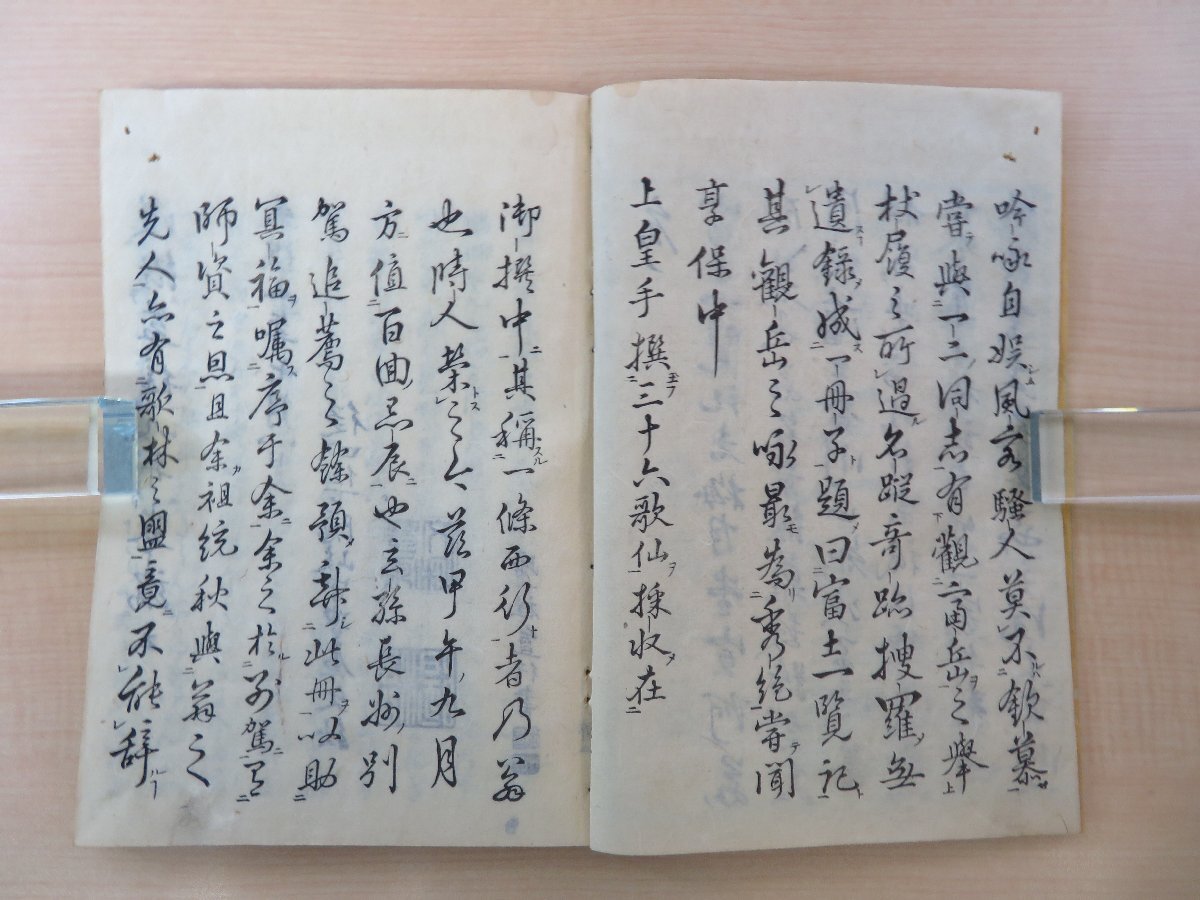 吟咏自娯風客騒人莫不欽慕
嘗與一二同志有觀富岳之擧
杖履之所過名蹤奇跡捜羅無
遺録成一冊子題曰富士一覧記
其觀岳之咏最為秀絶嘗聞
享保中
上皇手撰三十六歌仙採收在
御撰中其稱一條西行者乃翁
也時人榮之今茲甲午九月
方値百回忌辰也玄孫長州別
駕追薦之餘預新此冊以助
冥福嘱序于余余之於別駕有
師資之恩且余祖統秋與翁之
先人亦有歌林之盟竟不能辞